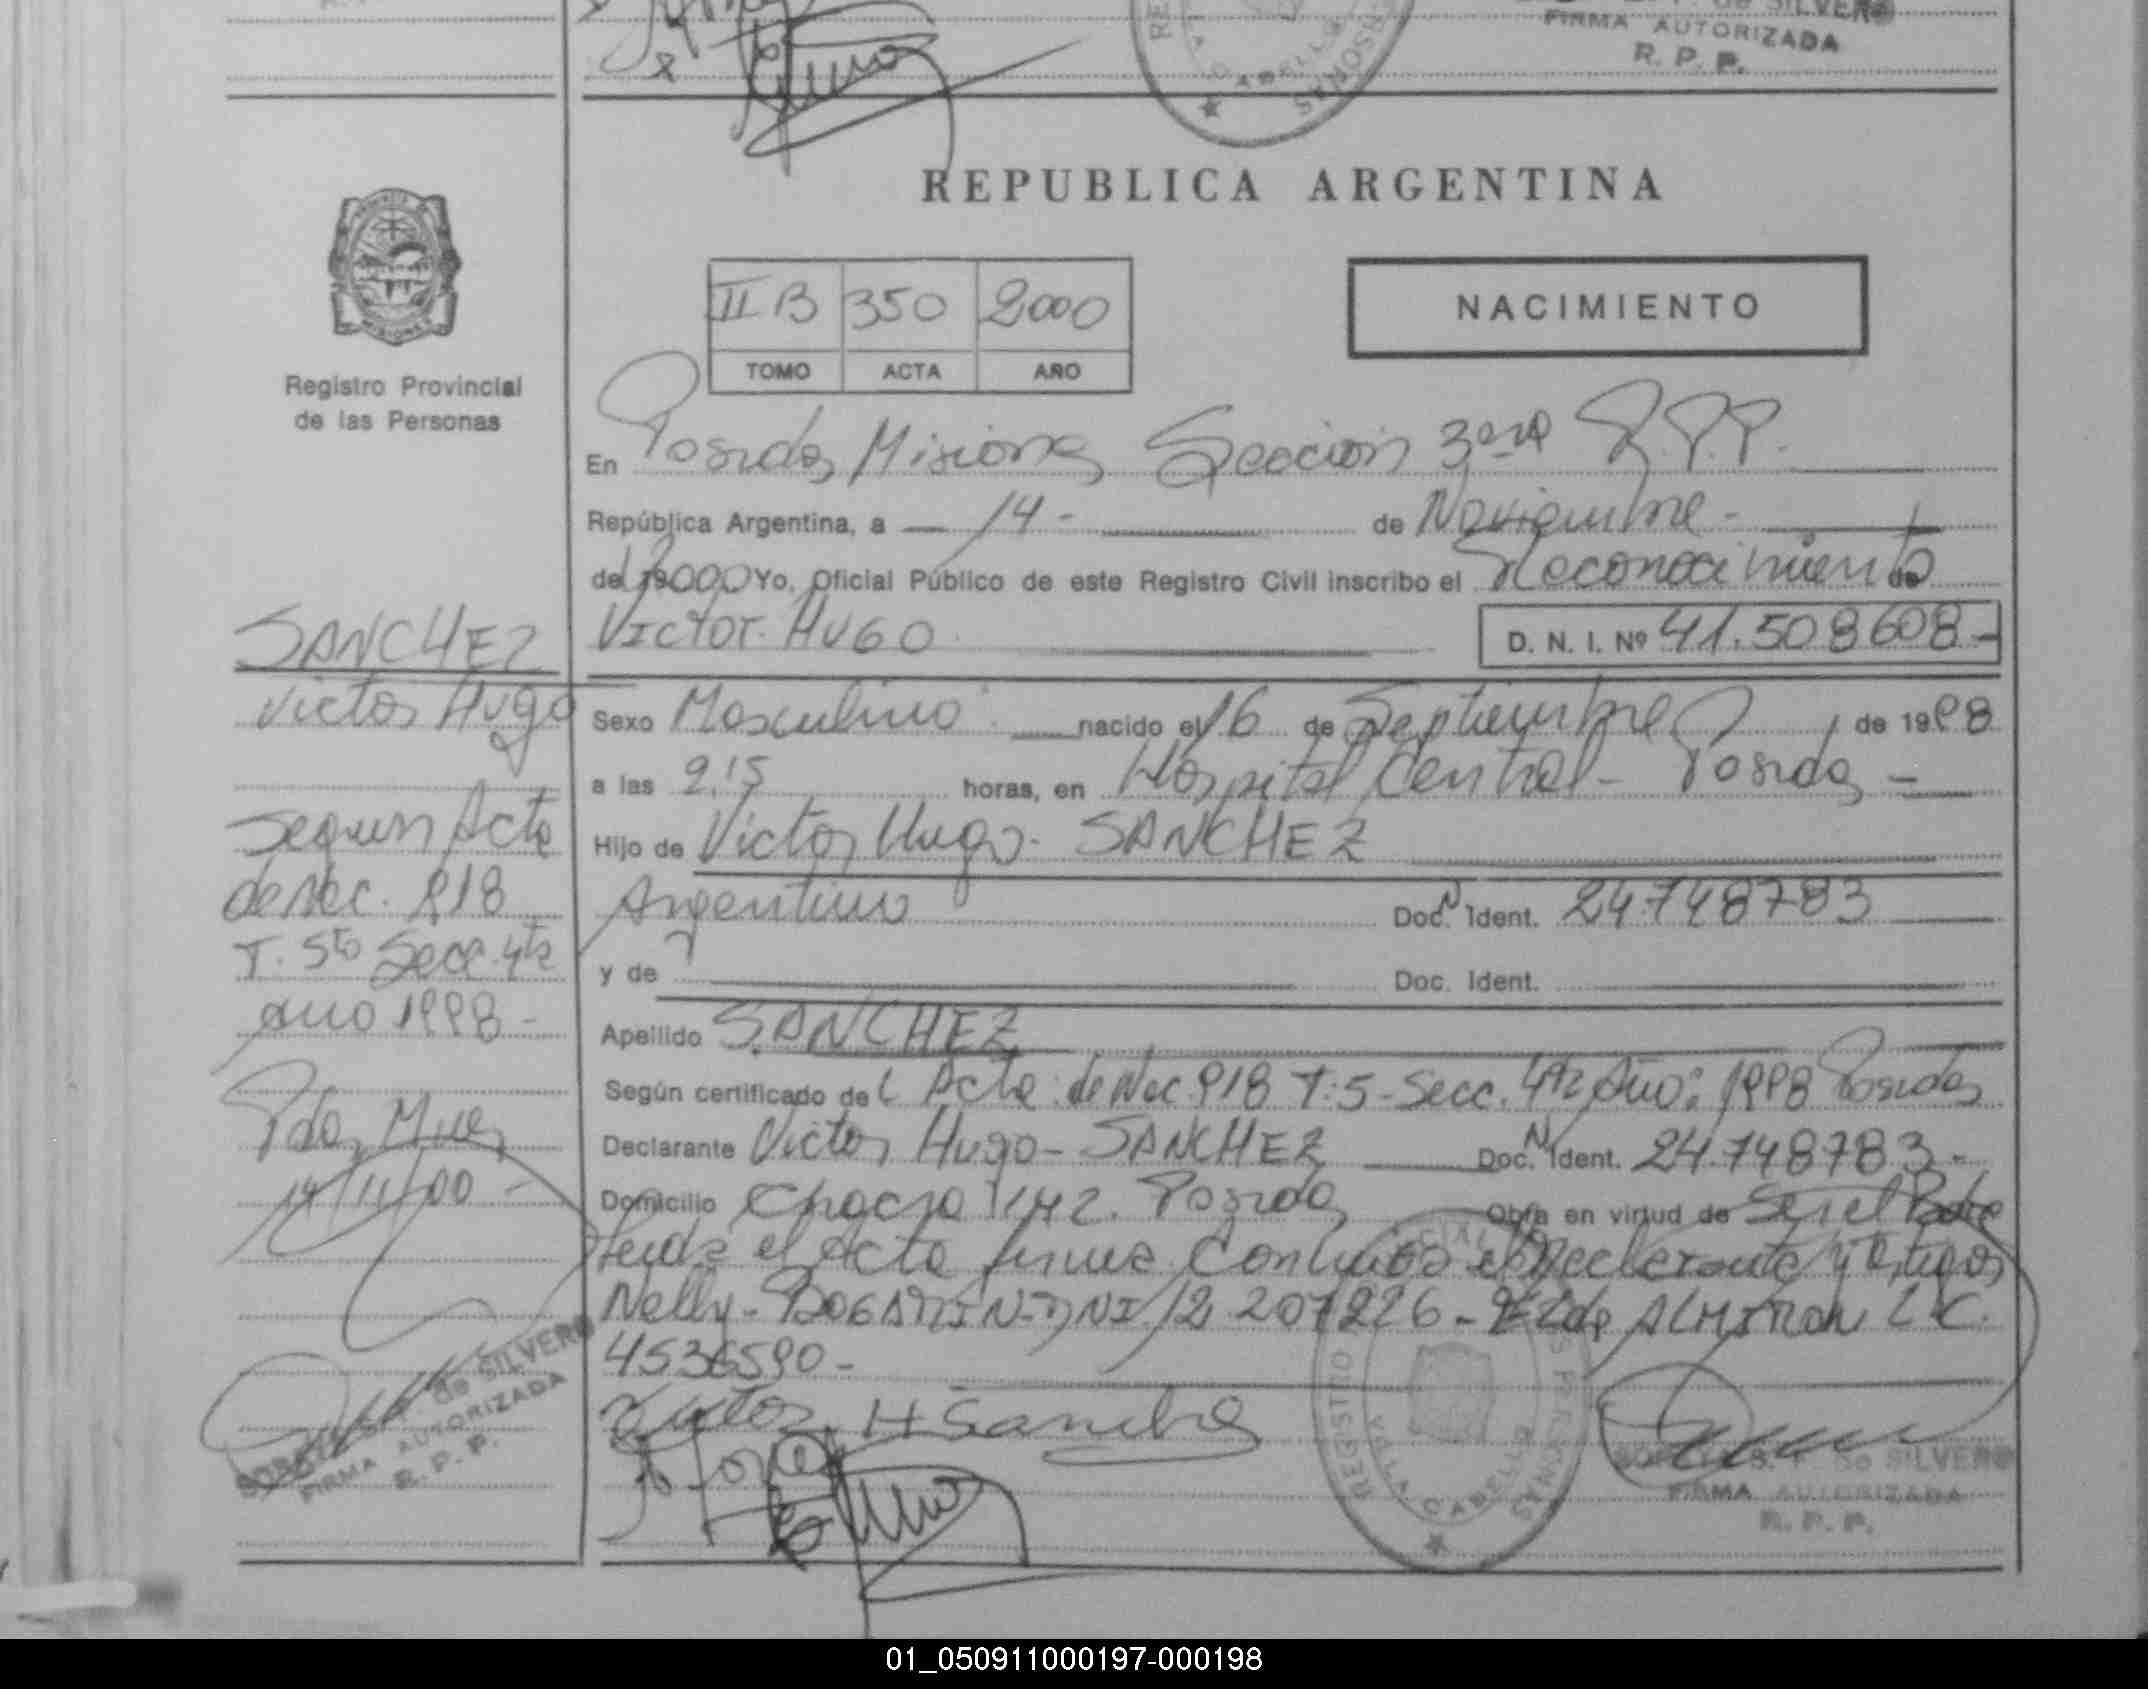 de SILVERO
FIRMA AUTORIZADA
R. P. P.
REPUBLICA ARGENTINA
II B 350 2000
TOMO ACTA AÑO
NACIMIENTO
Registro Provincial
de las Personas
En Posadas, Misiones Sección 3era R.P.P.
República Argentina, a 14 - de Noviembre -
del 2000 Yo, Oficial Público de este Registro Civil inscribo el Reconocimiento de
VICTOR HUGO D. N. I. Nº 41.508608-
Sexo Masculino nacido el 16 de Septiembre de 1998
a las 9,15 horas, en Hospital Central - Posadas -
Hijo de Victor Hugo - SANCHEZ
Argentino Doc. N Ident. 24.748783
y de Doc. Ident.
Apellido SANCHEZ
Según certificado del Acta de Nac. 918 T. 5 - Secc. 4ta Año: 1998 Posadas
Declarante Victor Hugo - SANCHEZ Doc. N Ident. 24.748783 -
Domicilio Chacra Posadas Obra en virtud de Ser el Padre
Leida el Acta firma Conmigo el Declarante y Testigos
Nelly - BOGARIN - DNI 12.207226 - ALMIRON L C.
4536590 -
Victor H Sanchez
SANCHEZ
Victor Hugo
Segun Acta
de Nac. 918
T. 5to Secc. 4ta
año 1998 -
Pdas, Mnes
14/11/00 -
de SILVERO
FIRMA AUTORIZADA
R. P. P.
REGISTRO
VILLA CABELLO
PERSONAS
de SILVERO
FIRMA AUTORIZADA
R. P. P.
01_050911000197-000198